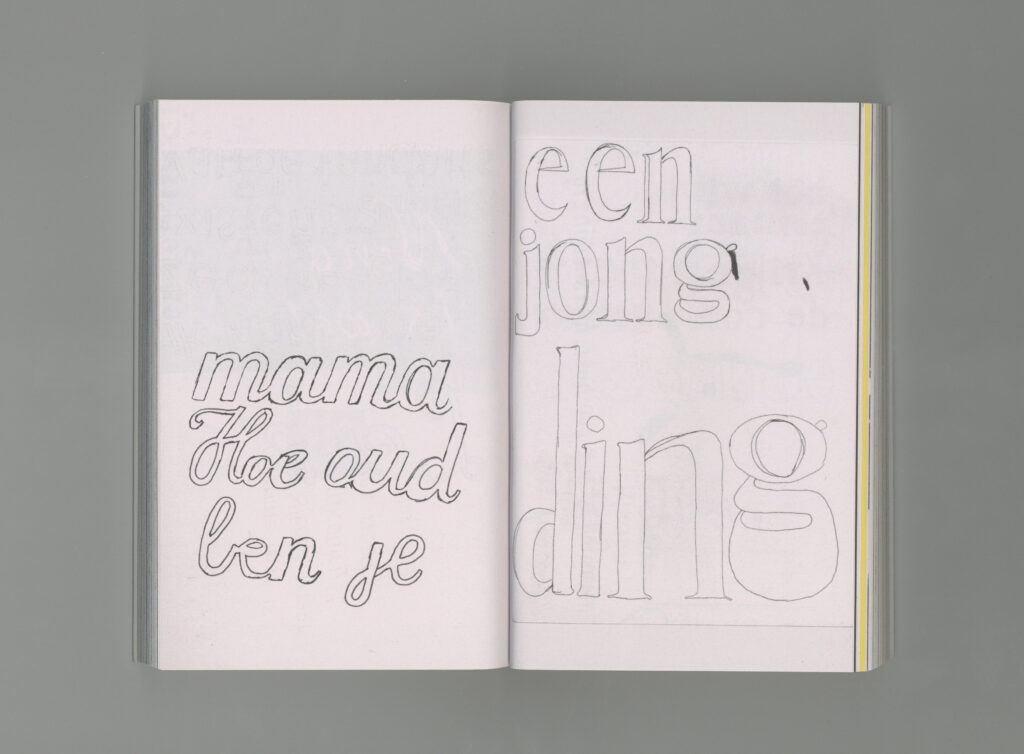 mama
Hoe oud
ben je
een
jong
ding